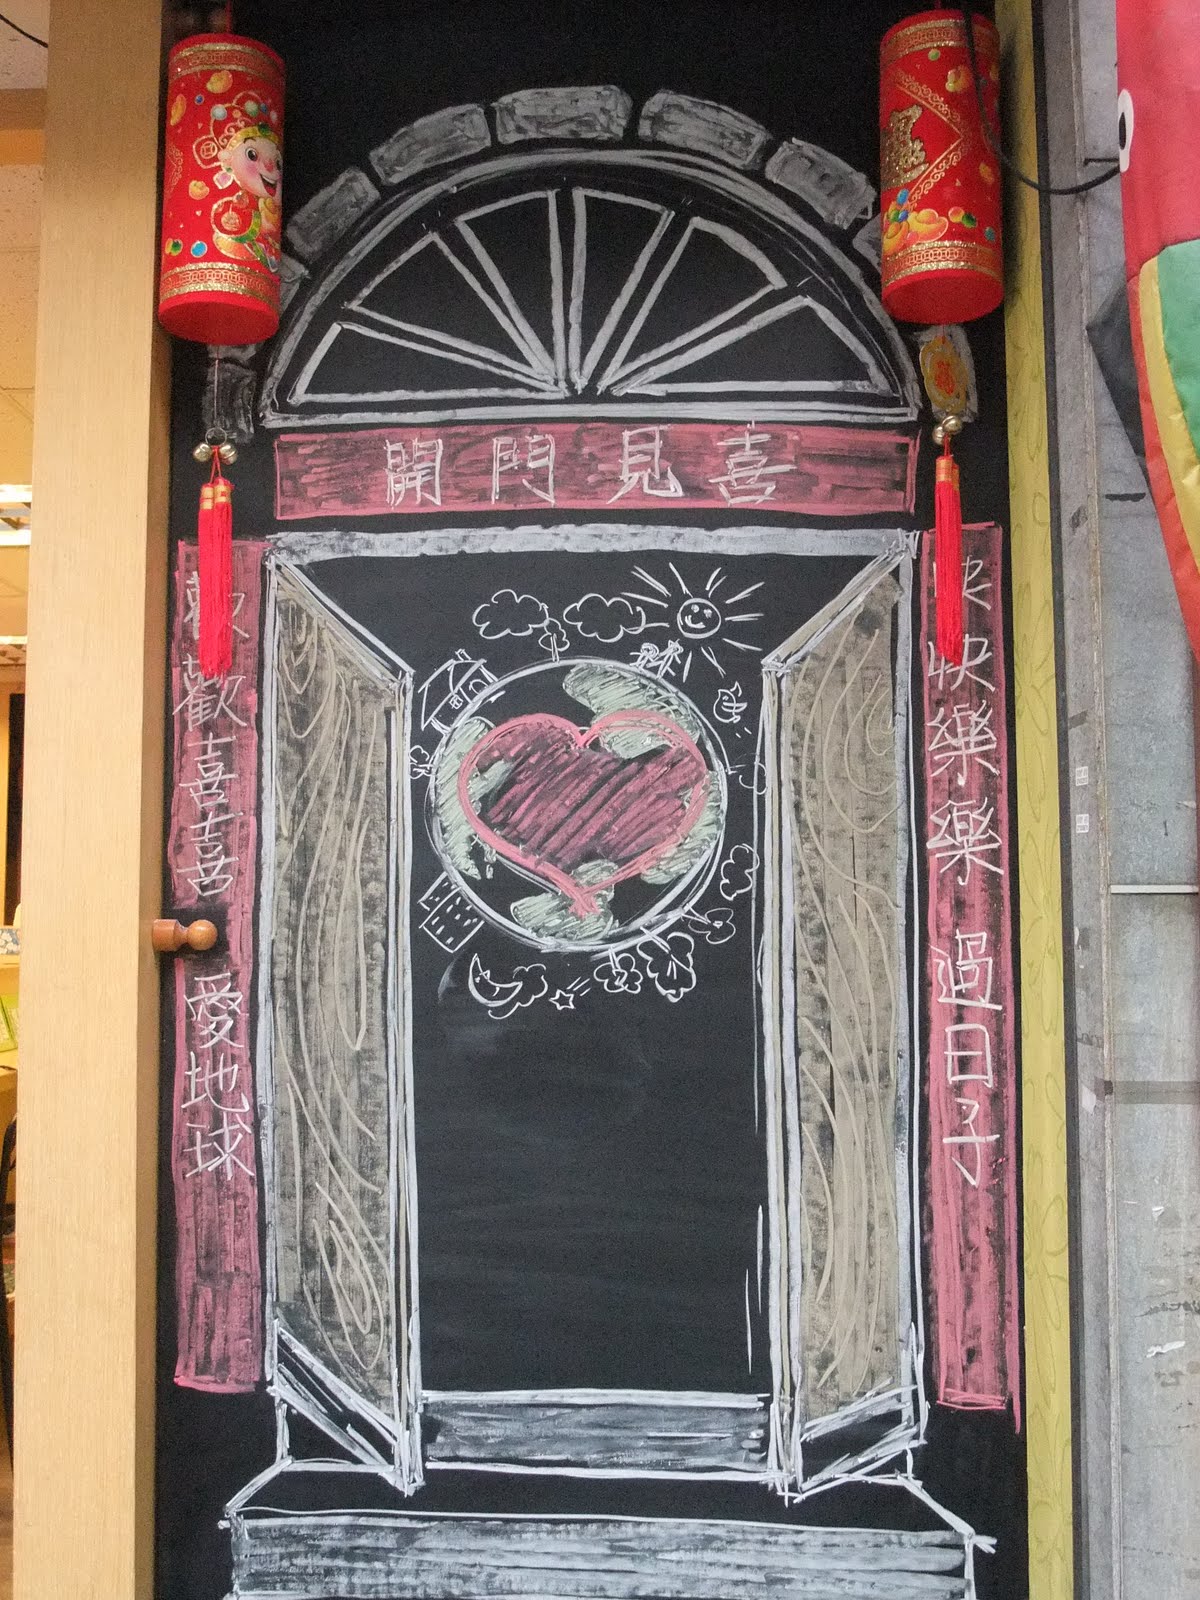 開門見喜
快快樂樂 過日子
歡歡喜喜 愛地球